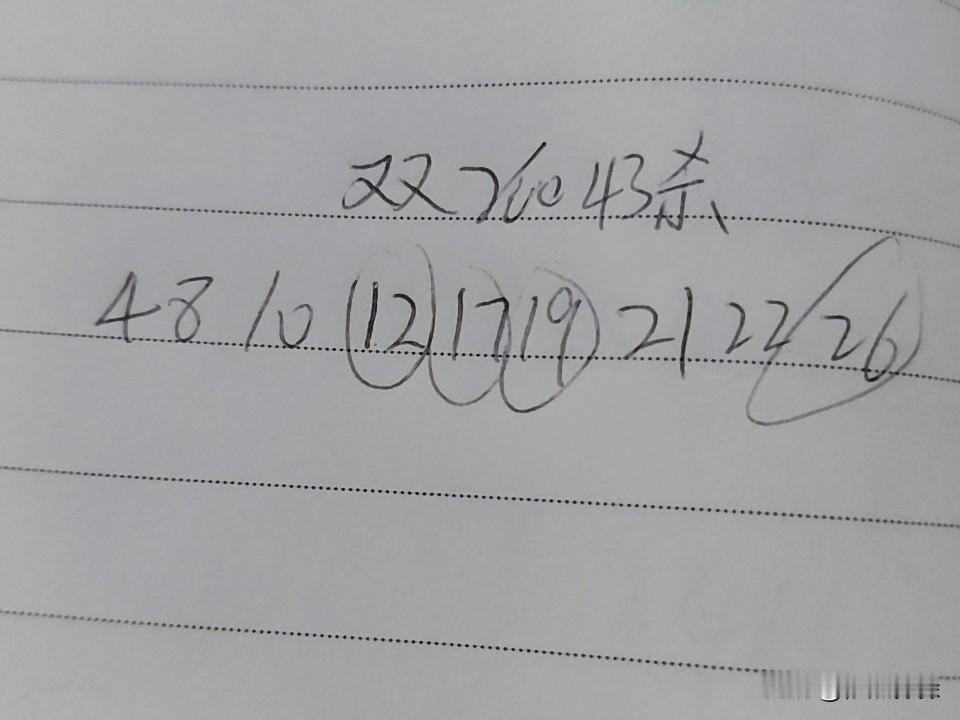 双26043杀
4 8 10 12 17 19 21 22 26